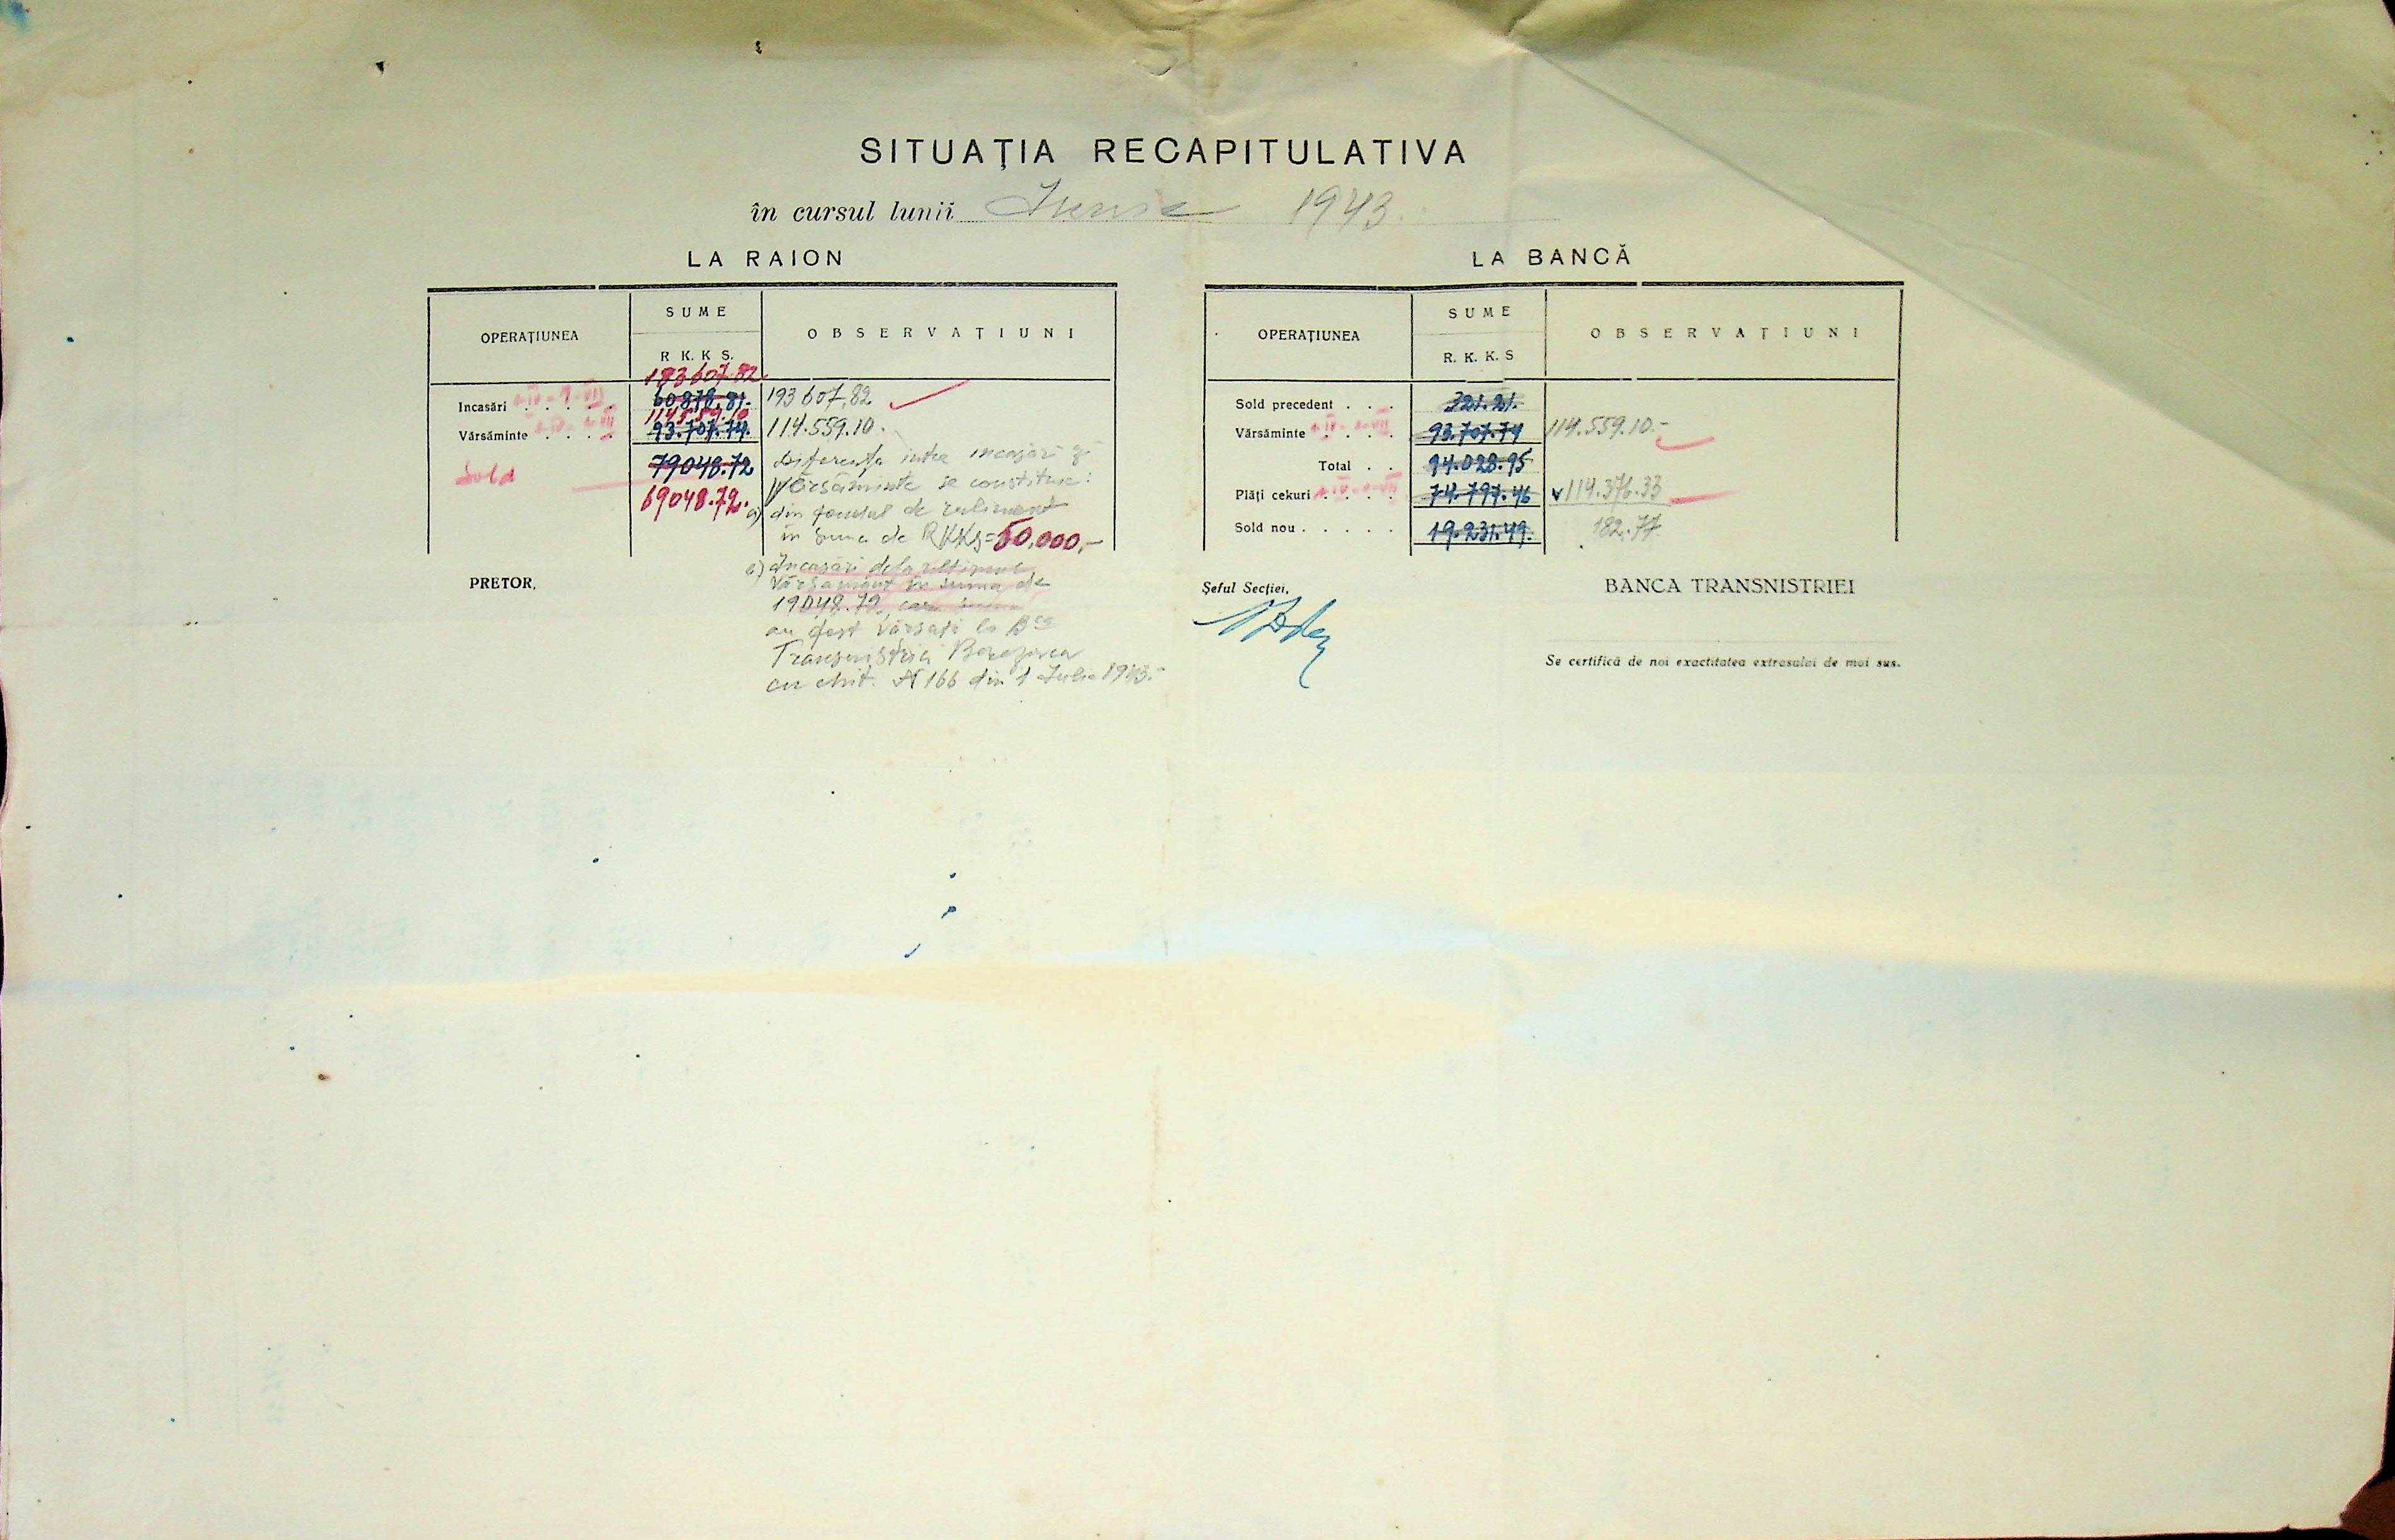 SITUAŢIA RECAPITULATIVA
în cursul lunii Iunie 1943.
LA RAION
OPERAŢIUNEA
SUME
R K. K S.
OBSERVAŢIUNI
183607.82
Incasări . . . . 60.878.81. 193607,82
114559.10
Vărsăminte . . . . 93.707.74. 114.559.10.
Sold 79048.72
69048.72.
Diferența intre incasări și
Vărsăminte se constituie:
a) din fondul de rulment
in suma de RKKS=50.000,-
b) Incasări dela ultimul
Vărsământ in suma de
19048.72, care suma
au fost Vărsați la Bca
Transnistriei Berezovca
cu chit. N 166 din 1 Iulie 1943.-
PRETOR,
LA BANCĂ
OPERAŢIUNEA
SUME
R. K. K. S
OBSERVAŢIUNI
Sold precedent . . . 321.21.
Vărsăminte . . . . 93.707.74 114.559.10.-
Total . . 94.028.95
Plăţi cekuri . . . . 74.797.46 114.376.33
Sold nou . . . . . 19.231.49. 182.77
Şeful Secţiei,
BANCA TRANSNISTRIEI
Se certifică de noi exactitatea extrasului de mai sus.